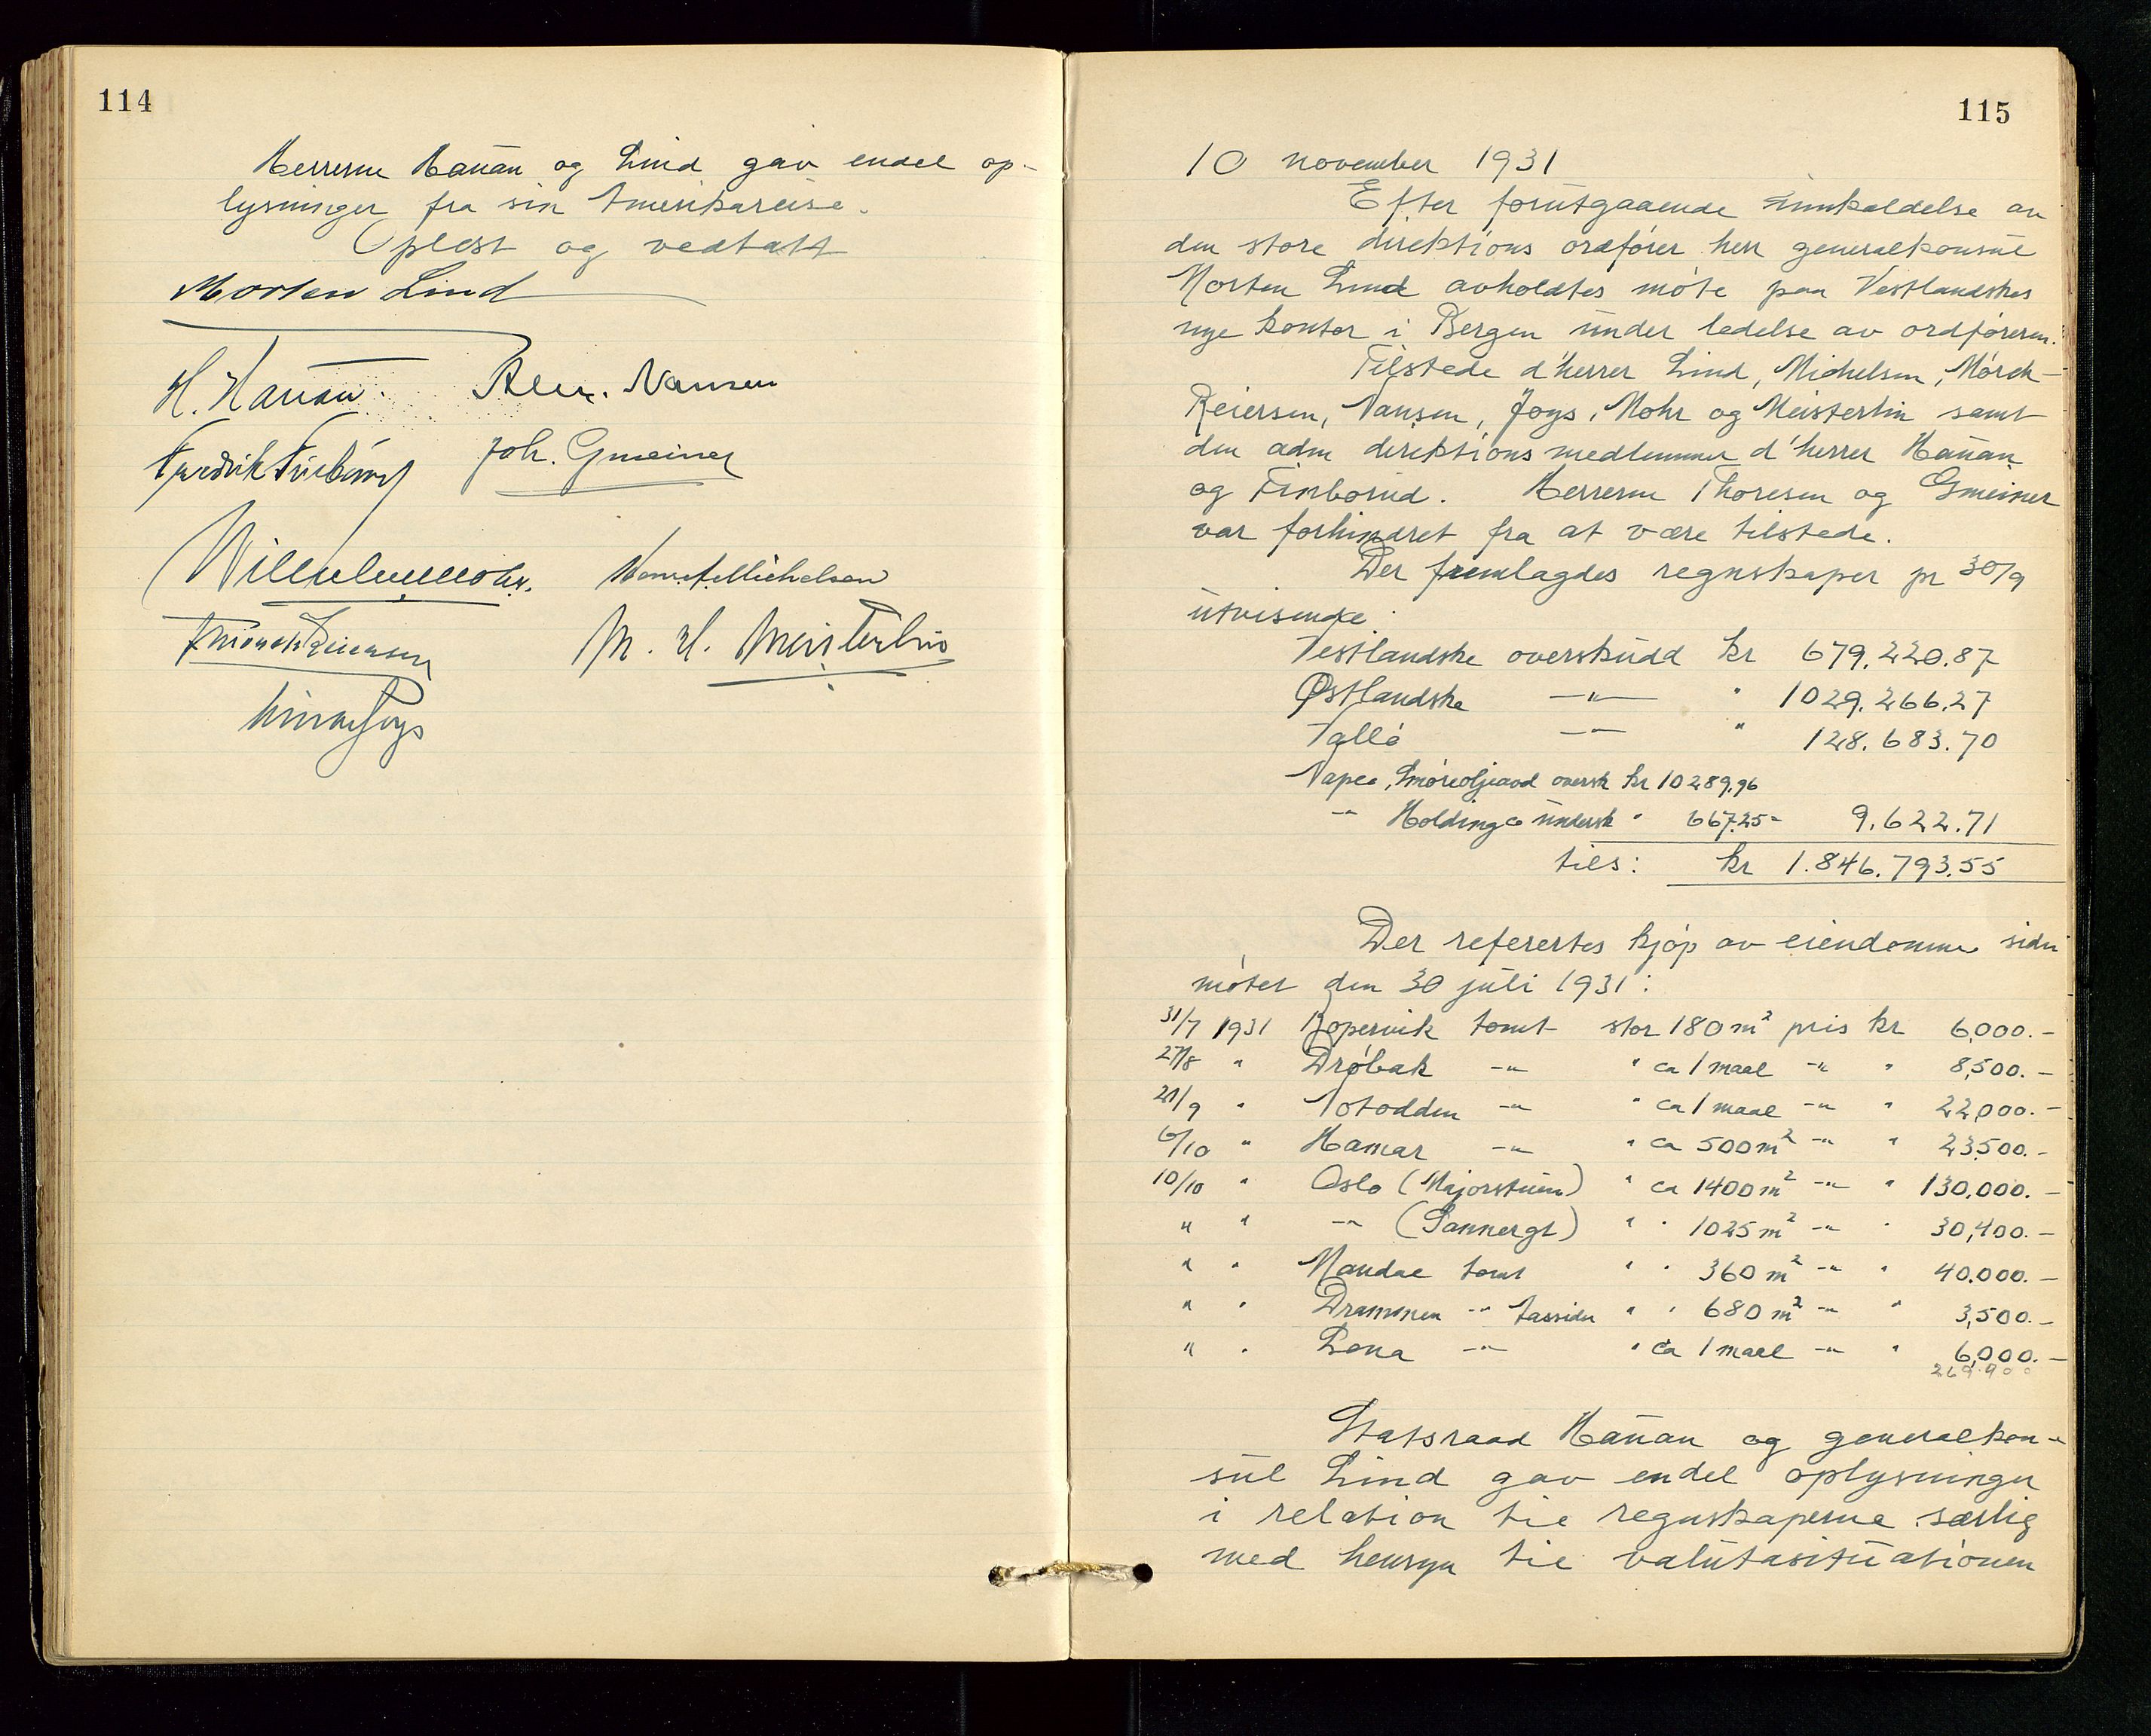 114
Herrerne Hauan og Lind gav endel op-
lysninger fra sin Amerikareise.
Oplest og vedtatt
Morten Lind
H. Hauan. Alex. Nansen
Fredrik Finborud Joh. Gmeiner
Wilhelm Mohr. Michelsen
Mørch Reiersen M. H. Meisterlin
Joys
115
10 november 1931
Efter forutgaaende innkaldelse av
den store direktions ordfører herr generalkonsul
Morten Lind avholdtes møte paa Vestlandskes
nye kontor i Bergen under ledelse av ordføreren.
Tilstede d'herrer Lind, Michelsen, Mørch-
Reiersen, Nansen, Joys, Mohr og Meisterlin samt
den adm direktions medlemmer d'herrer Hauan
og Finborud. Herrerne Thoresen og Gmeiner
var forhindret fra at være tilstede.
Der fremlagdes regnskaper pr 30/9
utvisende:
Vestlandske overskudd kr 679.220.87
Østlandske —"— " 1029.266.27
Vallø —"— " 128.683.70
Napea, Smøreoljeavd oversk kr 10289.96
—"— Holding co undersk " 667.25 = 9.622.71
tils: kr 1.846.793.55
Der refertes kjøp av eiendomme siden
møtet den 30 juli 1931:
31/7 1931 Kopervik tomt stor 180 m² pris kr 6,000.-
27/8 " Drøbak —"— " ca 1 maal —"— " 8,500.-
21/9 " Notodden —"— " ca 1 maal —"— " 22,000.-
6/10 " Hamar —"— " ca 500 m² —"— " 23.500.-
10/10 " Oslo (Majorstuen) " ca 1400 m² —"— " 130.000.-
" " —"— (Sannergt) " " 1025 m² —"— " 30,400.-
" " Mandal tomt " " 360 m² —"— " 40.000.-
" " Drammen —"— Tassiden " " 680 m² —"— " 3,500.-
" " Lena —"— " ca 1 maal —"— " 6,000.-
269.900
Statsraad Hauan og generalkon-
sul Lind gav endel oplysninger
i relation til regnskaperne særlig
med hensyn til valutasituationen